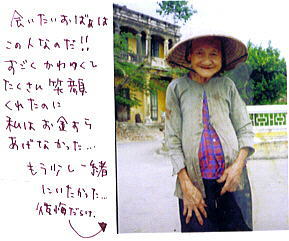 会いたいおばぁは
この人なのだ!!
すごくかわゆくし
たくさん笑顔
くれたのに
私はお金すら
あげなかった…
もう少し一緒
にいたかった…
後悔だらけ。